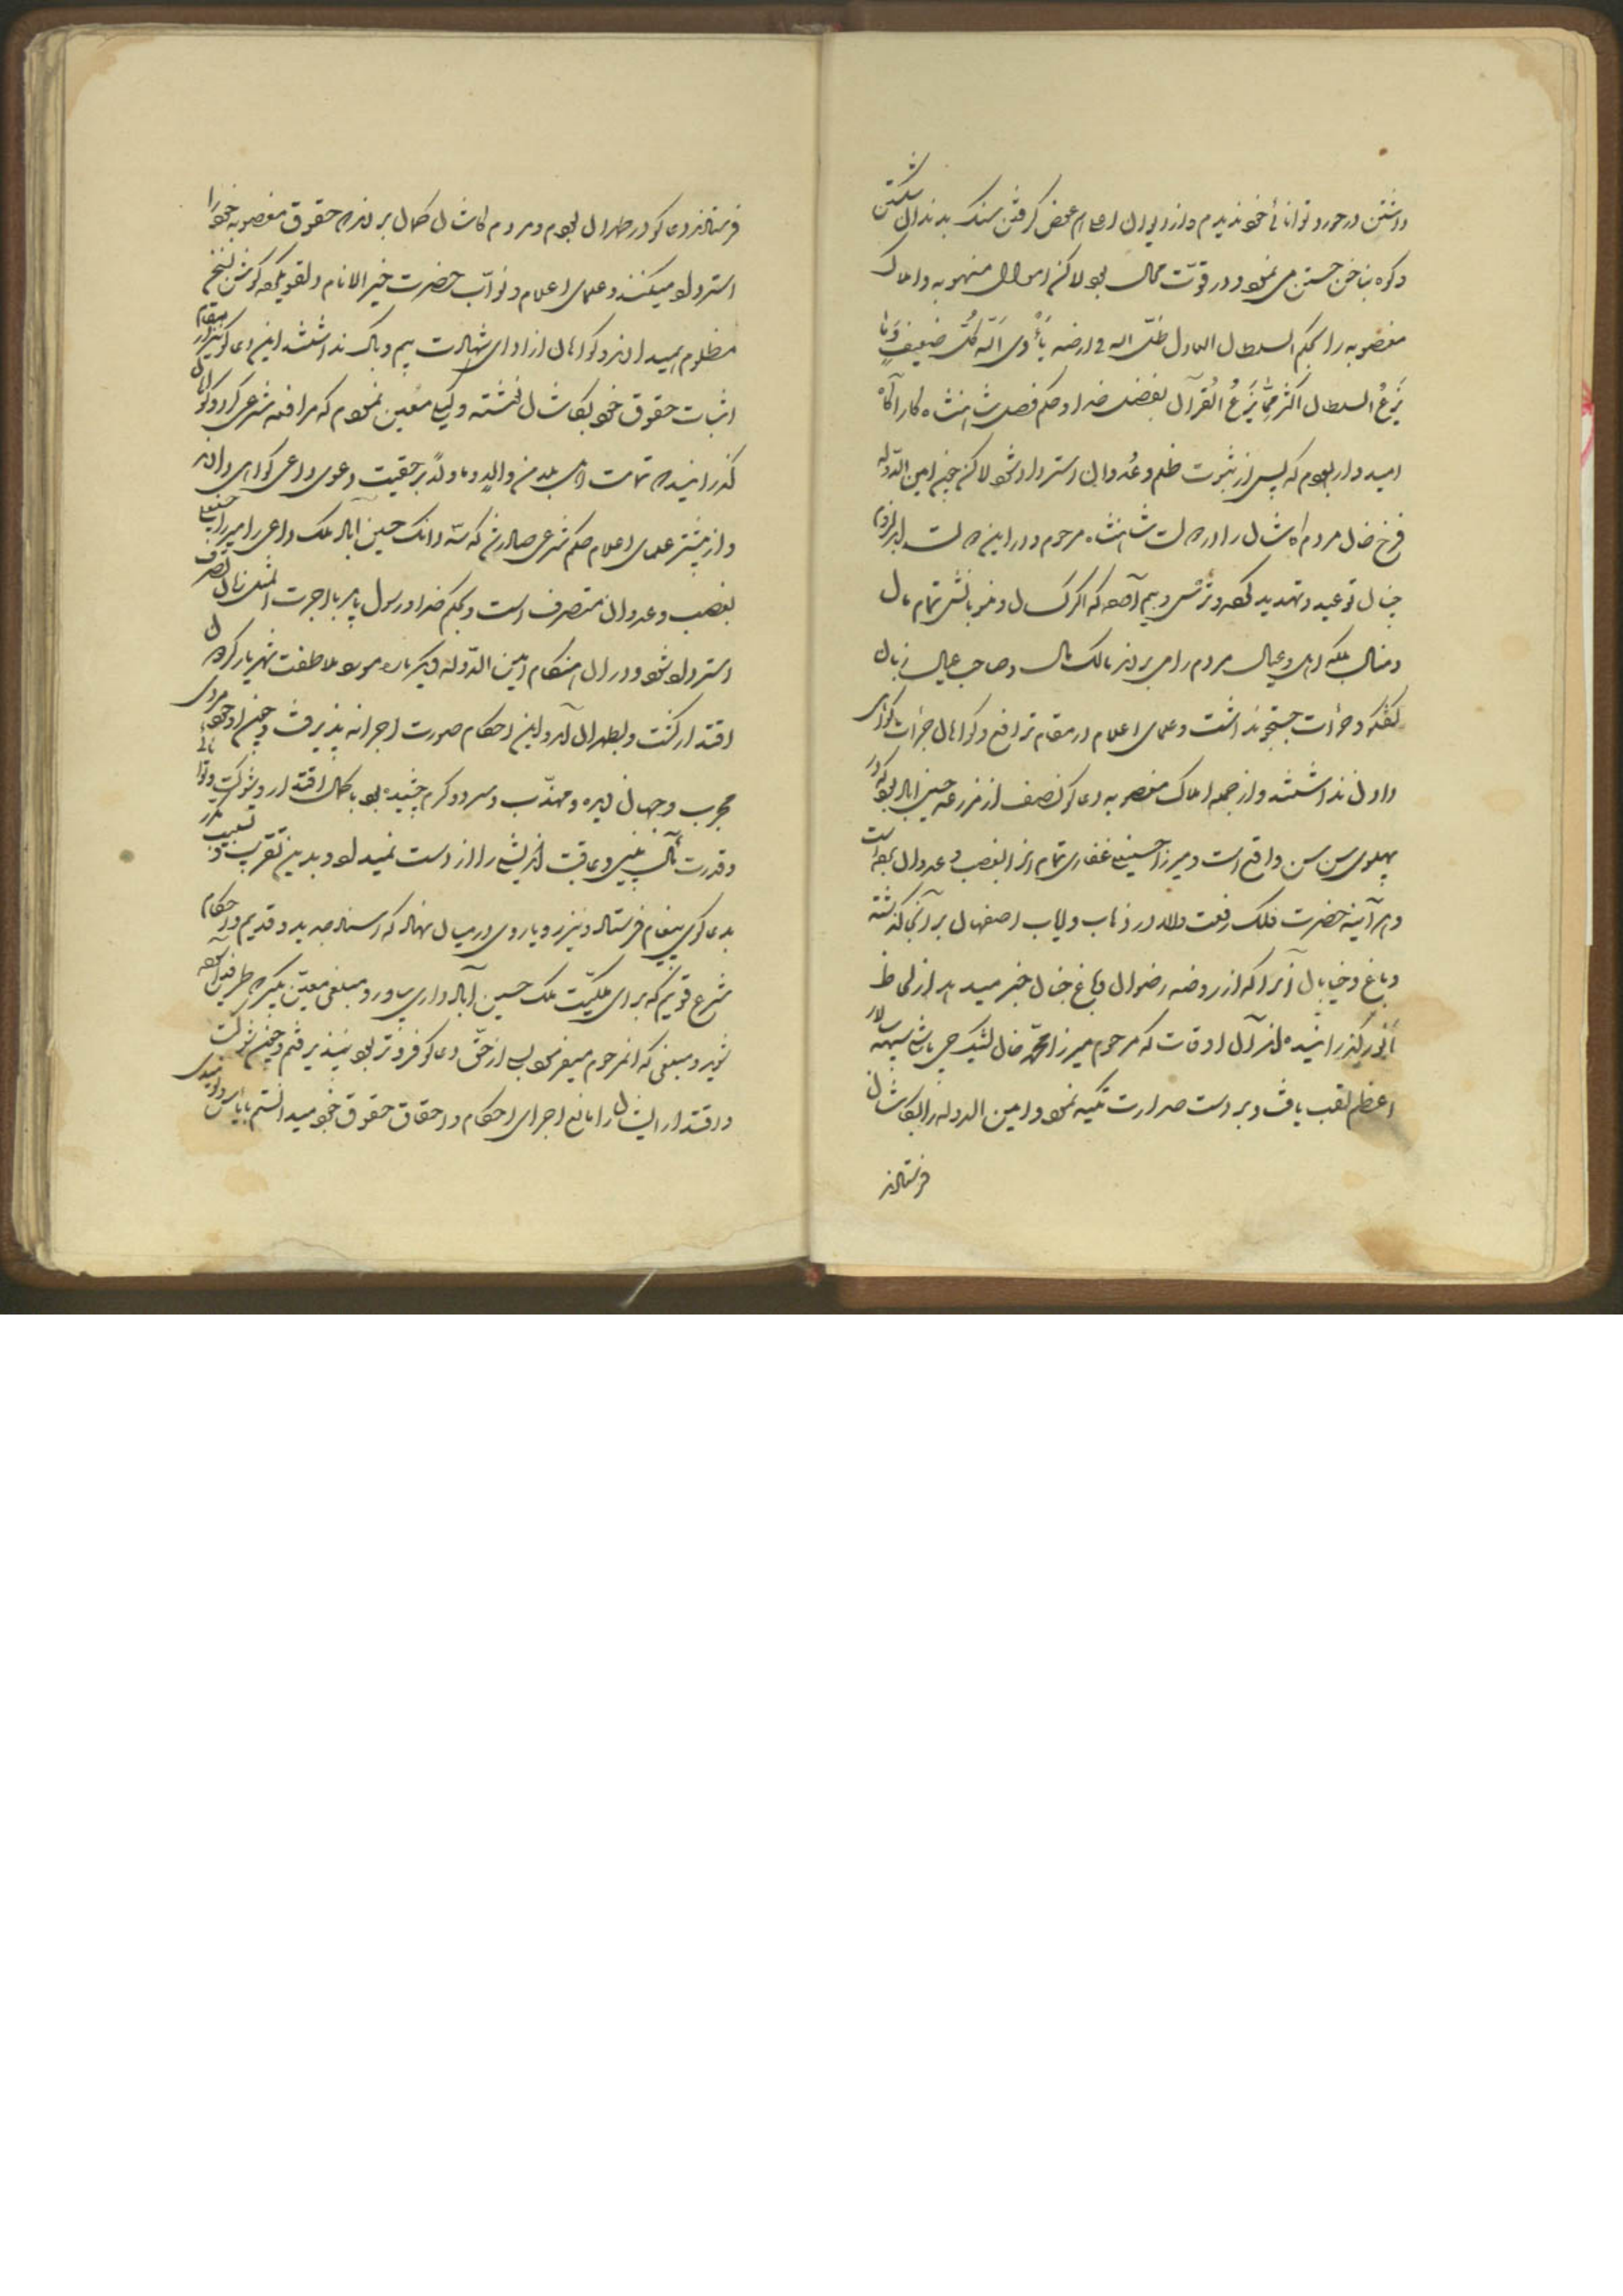 داشتن در خور و توانائی خود ندیدم و از دیوان اعلام محض گرفتن سنک بدندان شکستن
و کره بناخن جستن می نمود و در قوت محال بود لاکن اموال منهوبه و املاک
مغصوبه را بحکم السلطان العادل ظل الله فی ارضه یأوی الیه کل ضعیف و ما
یزع السلطان اکثر مما یزع القرآن بفضل خدا و حکم فصل شاهنشاه کار آگاه
امیدوار بودم که پس از ثبوت ظلم و عدوان استرداد شود لاکن چنین امین الدوله
فرخ خان مردم کاشان را در حالت شاهنشاه مرحوم و در این حالت
چنان توعید و تهدید کرده و ترس و بیم آمده که اگر کسان و منسوبانش تمام مال
و منال بلکه اهل و عیال مردم را می بردند مالک مال و صاحب عیال زبان
گفتگو و جرأت جستجو نداشت و علمای اعلام در مقام ترافع و گواهان جرأت گواهی
دادن نداشتند و از جمله املاک مغصوبه دعاگو نصف از مزرعه حسین اباد بود که در
پهلوی سن سن واقع است و میرزا حسینعلی غفاری تمام انرا بغصب و عدوان برده است
و هر آینه حضرت فلک رفعت والا در ذهاب و ایاب اصفهان بر آنجا گذشته
و باغ و خیابان آنرا که از روضه رضوان و باغ جنان خبر میدهد از لحاظ
انور گذرانیده اند آن اوقات که مرحوم میرزا محمد خان کشیکچی باشی سپهسالار
اعظم لقب یافت و بر دست صدارت تکیه نمود و امین الدوله را بکاشان
فرستادند
فرستادند دعاگو در طهران بودم و مردم کاشان کمان بردند که حقوق مغصوبه خود را
استرداد میکنند و علمای اعلام و نواب حضرت خیر الانام
مظلوم میدادند و گواهان از ادای شهادت بیم و باک نداشتند این دعاگو نیز در مقام
اثبات حقوق خود بکاشان نوشته وکیلی معین نمودم که مرافعه شرعی کرد و گواهان
گذرانیده تمامت اهل بلد من والد و ما ولد بر حقیت دعوی داعی گواهی دادند
و از بیشتر علمای اعلام حکم شرعی صادر شد که سه دانک حسین آباد ملک داعی را میرزا حسینعلی
بغصب و عدوان متصرف است و بحکم خدا و رسول باید با اجرت المثل زمان تصرف
استرداد شود و در ان هنگام امین الدوله دیگر باره مورد ملاطفت شهریار گردون
اقتدار گشت و بطهران آمد و این احکام صورت اجرا نه پذیرفت و چون او خود مردی
مجرب و جهان دیده و مهذب و سرد و گرم چشیده بود با کمال اقتدار و شوکت و توانائی
و قدرت مآل بینی و عاقبت اندیشی را از دست نمیداد و بدین تقریب و تسبیب مکرر
بدعاگوی پیغام فرستاد و نیز رویاروی در میان نهاد که اسناد جدید و قدیم و احکام
شرع قویم که برای ملکیت ملک حسین آباد داری بیاور و مبلغی معین بگیر که طرفین آسوده
شوید و مبلغی که انمرحوم میفرمود بسی از حق دعاگو فروتر بود نپذیرفتم و چون شوکت
و اقتدار ایشان را مانع اجرای احکام و احقاق حقوق خود میدانستم با یأس و نومیدی